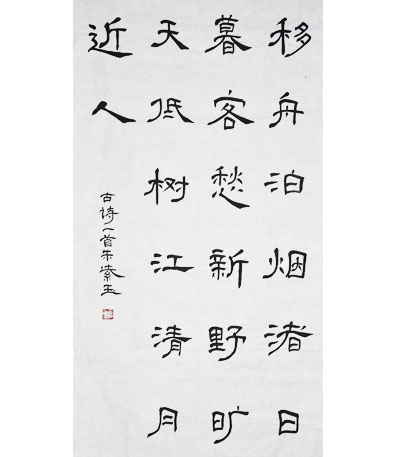 移舟泊烟渚日
暮客愁新野旷
天低树江清月
近人
古诗一首朱素玉